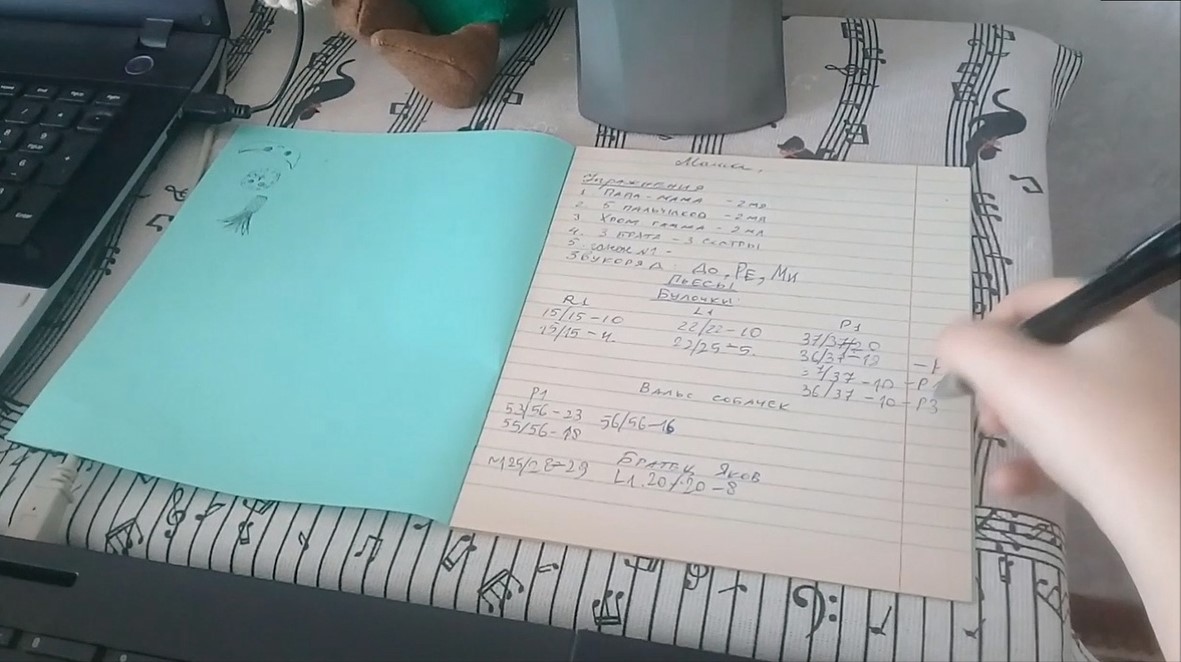 Мама,
Упражнения
1. ПАПА-МАМА - 2 МЛ
2. 5 ПАЛЬЧИКОВ - 2 МЛ
3. ХРОМ ГАММА - 2 МЛ
4. 3 БРАТА - 3 СЕСТРЫ
5. №1 -
ЗВУКОРЯД: ДО, РЕ, МИ
ПЬЕСЫ
БУЛОЧКИ:
R1
15/15-10
15/15-4.
L1
22/22-10
22/25-5.
P1
36/37-12
36/37-10-P3
ВАЛЬС СОБАЧЕК
P1
53/56-23
55/56-18
56/56-16
БРАТЕЦ ЯКОВ
L1. 20/20-8